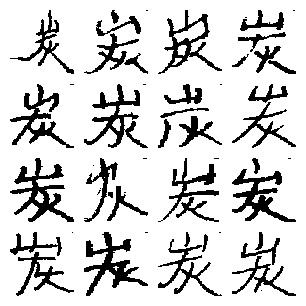 炭炭炭炭
炭炭炭炭
炭炭炭炭
炭炭炭炭